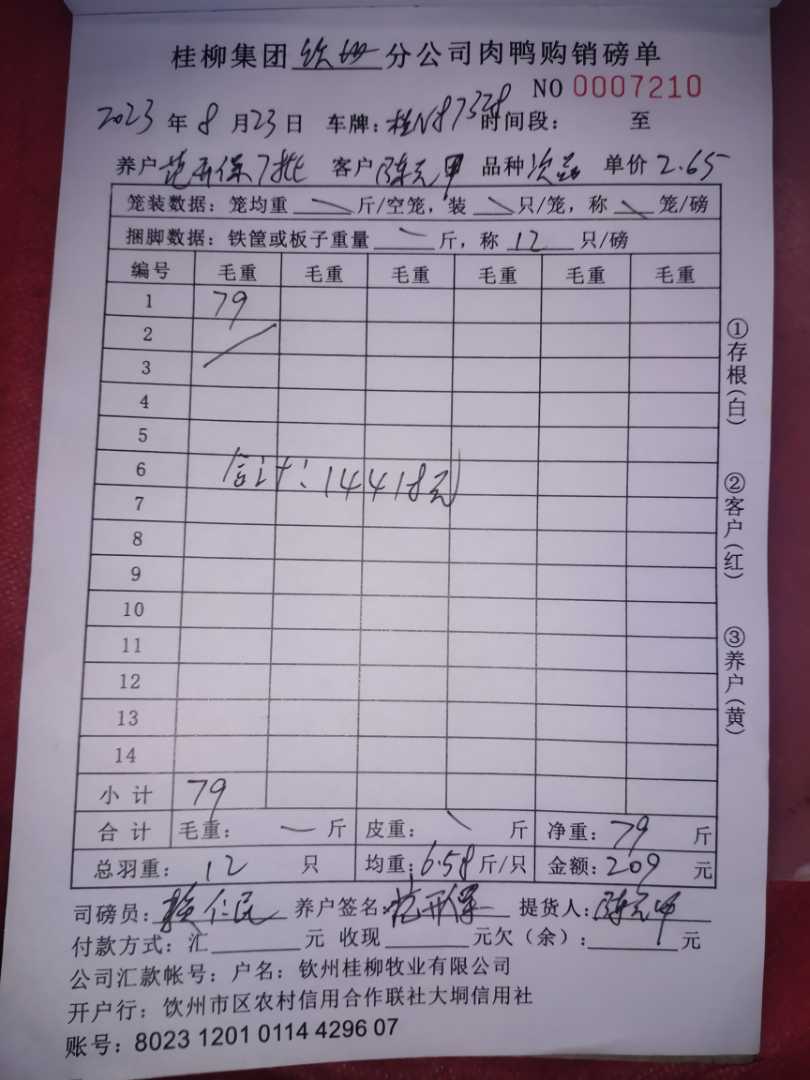 桂柳集团钦州分公司肉鸭购销磅单
NO 0007210
2023年8月23日 车牌:桂N87328时间段: 至
养户范开保7批 客户陈元甲 品种次品 单价2.65
笼装数据:笼均重 斤/空笼,装 只/笼,称 笼/磅
捆脚数据:铁筐或板子重量 斤,称12只/磅
编号 毛重 毛重 毛重 毛重 毛重 毛重
1 79
2
3
4
5
6 合计:14418元
7
8
9
10
11
12
13
14
小计 79
合计 毛重: 斤 皮重: 斤 净重:79斤
总羽重:12只 均重:6.58斤/只 金额:209元
司磅员:赖仁民 养户签名:范开保 提货人:陈元甲
付款方式:汇 元 收现 元欠(余): 元
公司汇款帐号:户名:钦州桂柳牧业有限公司
开户行:饮州市区农村信用合作联社大垌信用社
账号:8023 1201 0114 4296 07
①存根(白)
②客户(红)
③养户(黄)